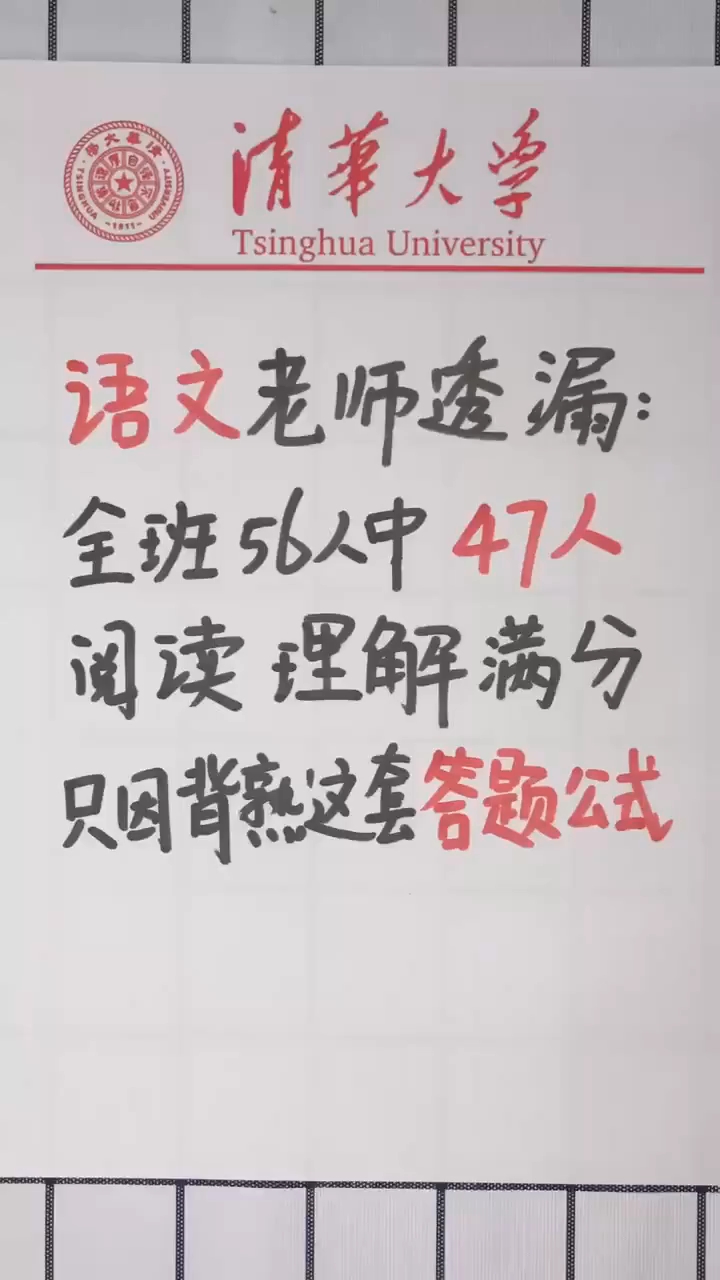 清华大学
Tsinghua University
TSINGHUA UNIVERSITY
-1911-
语文老师透漏:
全班56人中 47人
阅读理解满分
只因背熟这套答题公式